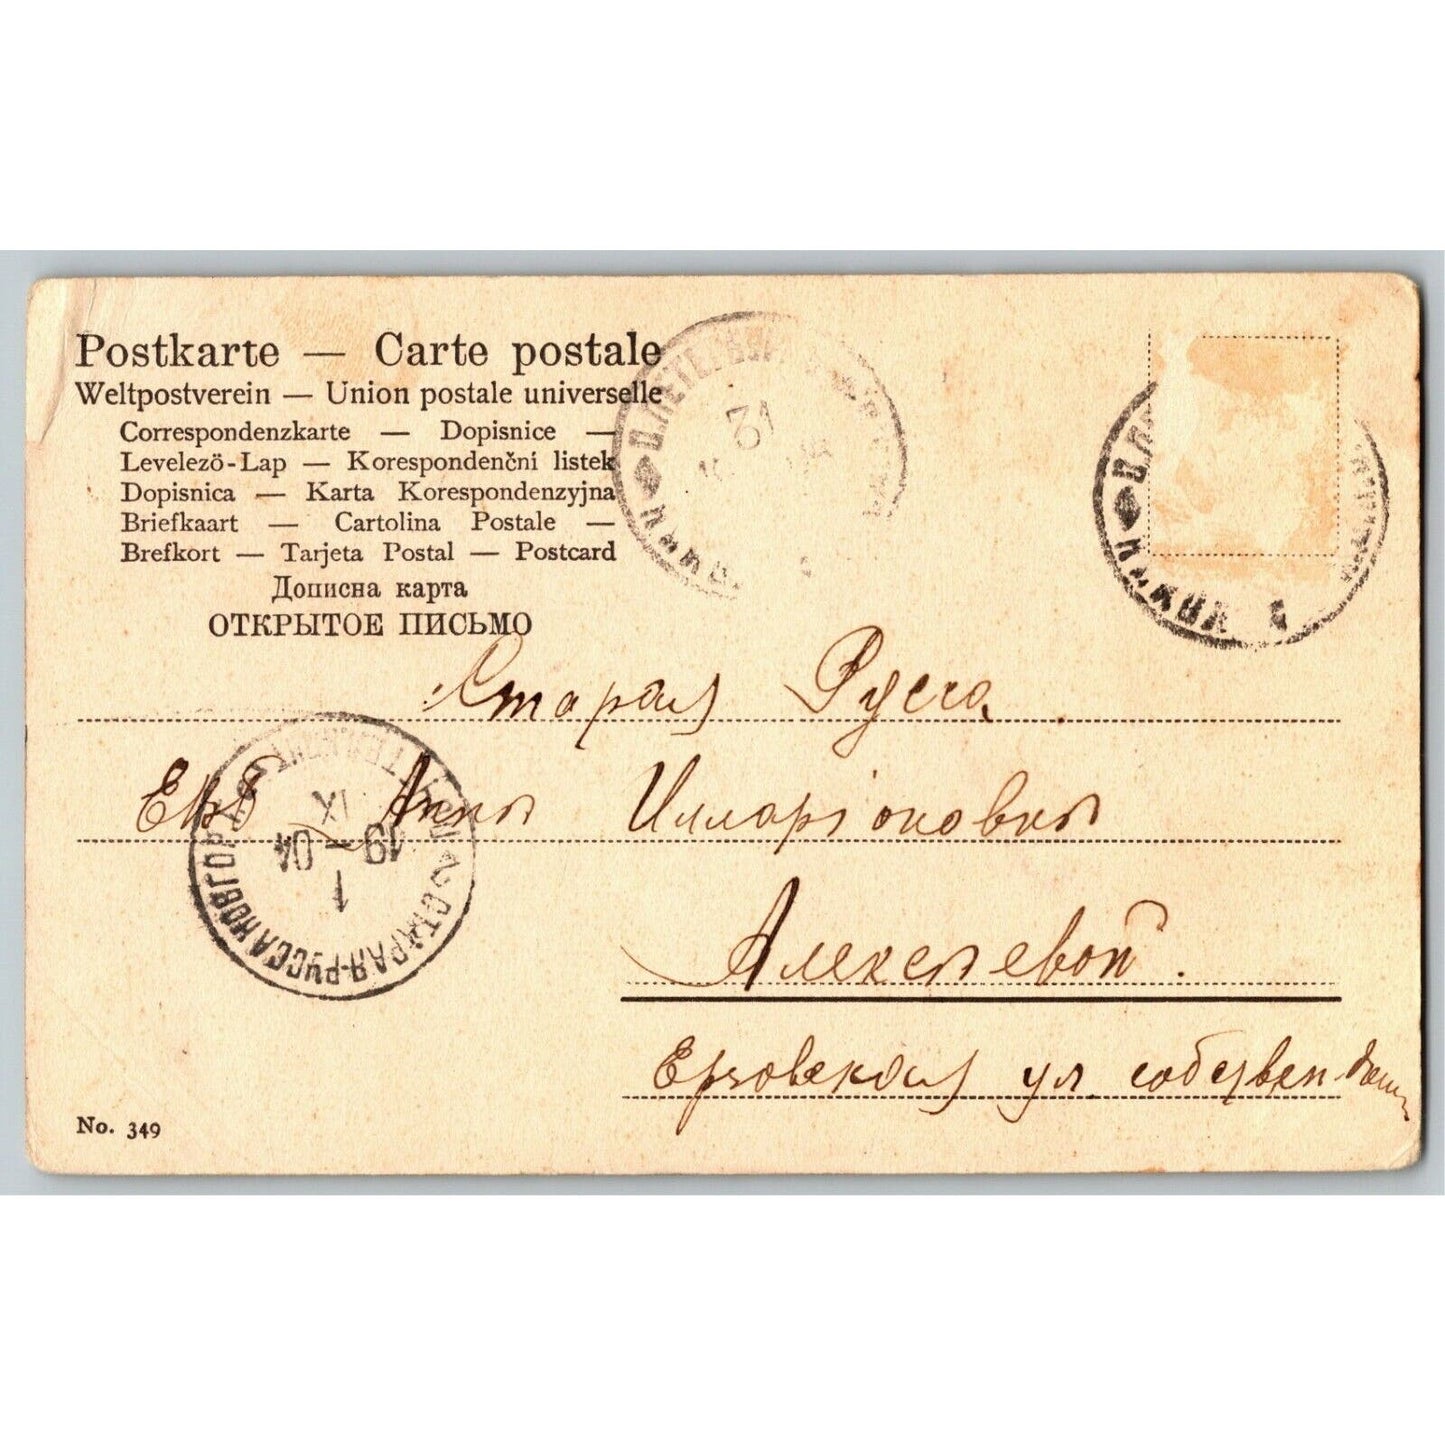 Postkarte — Carte postale
Weltpostverein — Union postale universelle
Correspondenzkarte — Dopisnice —
Levelezö-Lap — Korespondenční listek
Dopisnica — Karta Korespondenzyjna
Briefkaart — Cartolina Postale —
Brefkort — Tarjeta Postal — Postcard
Дописна карта
ОТКРЫТОЕ ПИСЬМО
Старая Русса
Анны Илларіоновны
Алексѣевой.
ул собствен
СТАРАЯ-РУССА НОВГОР
IX
1904
1
No. 349